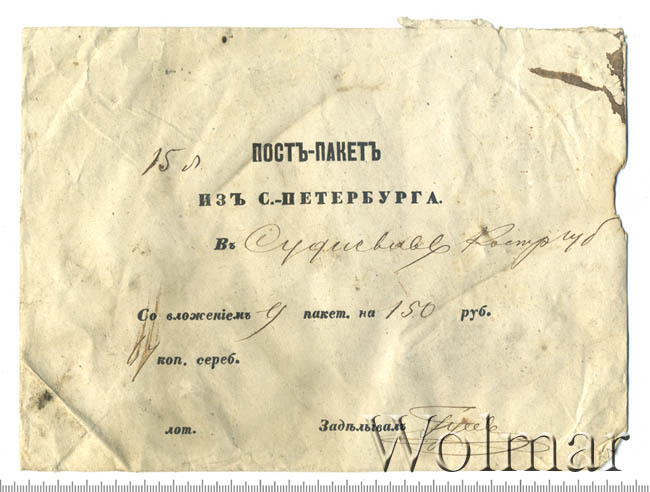 15 л.
ПОСТЪ-ПАКЕТЪ
ИЗЪ С.-ПЕТЕРБУРГА.
Въ Костр губ
Со вложеніемъ 9 пакет. на 150 руб.
коп. сереб.
лот. Задѣлывалъ
Wolmar